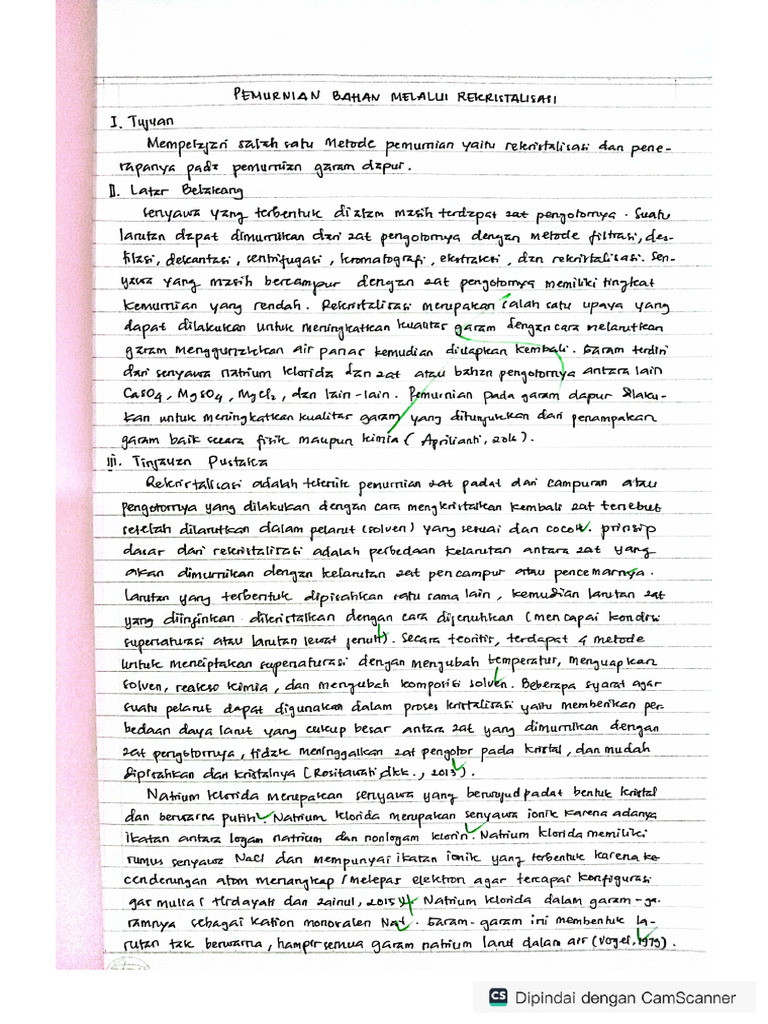 PEMURNIAN BAHAN MELALUI REKRISTALISASI
I. Tujuan
Mempelajari salah satu metode pemurnian yaitu rekristalisasi dan pene-
rapanya pada pemurnian garam dapur.
II. Latar Belakang
Senyawa yang terbentuk di alam masih terdapat zat pengotornya. Suatu
larutan dapat dimurnikan dari zat pengotornya dengan metode filtrasi, des-
tilasi, deskantasi, sentrifugasi, kromatografi, ekstraksi, dan rekristalisasi. Sen-
yawa yang masih bercampur dengan zat pengotornya memiliki tingkat
kemurnian yang rendah. Rekristalisasi merupakan salah satu upaya yang
dapat dilakukan untuk meningkatkan kualitas garam dengan cara melarutkan
garam menggunakan air panas kemudian diuapkan kembali. Garam terdiri
dari senyawa natrium klorida dan zat atau bahan pengotornya antara lain
CaSO4, MgSO4, MgCl2, dan lain-lain. Pemurnian pada garam dapur dilaku-
kan untuk meningkatkan kualitas garam yang ditunjukkan dari penampakan
garam baik secara fisik maupun kimia (Aprilianti, 2016).
III. Tinjauan Pustaka
Rekristalisasi adalah teknik pemurnian zat padat dari campuran atau
pengotornya yang dilakukan dengan cara mengkristalkan kembali zat tersebut
setelah dilarutkan dalam pelarut (solven) yang sesuai dan cocok. prinsip
dasar dari rekristalisasi adalah perbedaan kelarutan antara zat yang
akan dimurnikan dengan kelarutan zat pencampur atau pencemarnya.
Larutan yang terbentuk dipisahkan satu sama lain, kemudian larutan zat
yang diinginkan dikristalkan dengan cara dijenuhkan (mencapai kondisi
supernaturasi atau larutan lewat jenuh). Secara teoritis, terdapat 4 metode
untuk menciptakan supenaturasi dengan mengubah temperatur, menguapkan
solven, reakso kimia, dan mengubah komposisi solven. Beberapa syarat agar
suatu pelarut dapat digunakan dalam proses kristalisasi yaitu memberikan per-
bedaan daya larut yang cukup besar antara zat yang dimurnikan dengan
zat pengotornya, tidak meninggalkan zat pengotor pada kristal, dan mudah
dipisahkan dari kristalnya (Rositawati, dkk., 2013).
Natrium klorida merupakan senyawa yang berwujud padat bentuk kristal
dan berwarna putih. Natrium klorida merupakan senyawa ionik karena adanya
ikatan antara logam natrium dan nonlogam klorin. Natrium klorida memiliki
rumus senyawa NaCl dan mempunyai ikatan ionik yang terbentuk karena ke
cenderungan atom menangkap/melepas elektron agar tercapai konfigurasi
gas mulia (Hidayati dan Zainul, 2015). Natrium klorida dalam garam-ga-
ramnya sebagai kation monovalen Na+. Garam-garam ini membentuk la-
rutan tak berwarna, hampir semua garam natrium larut dalam air (Vogel, 1979).
CS Dipindai dengan CamScanner